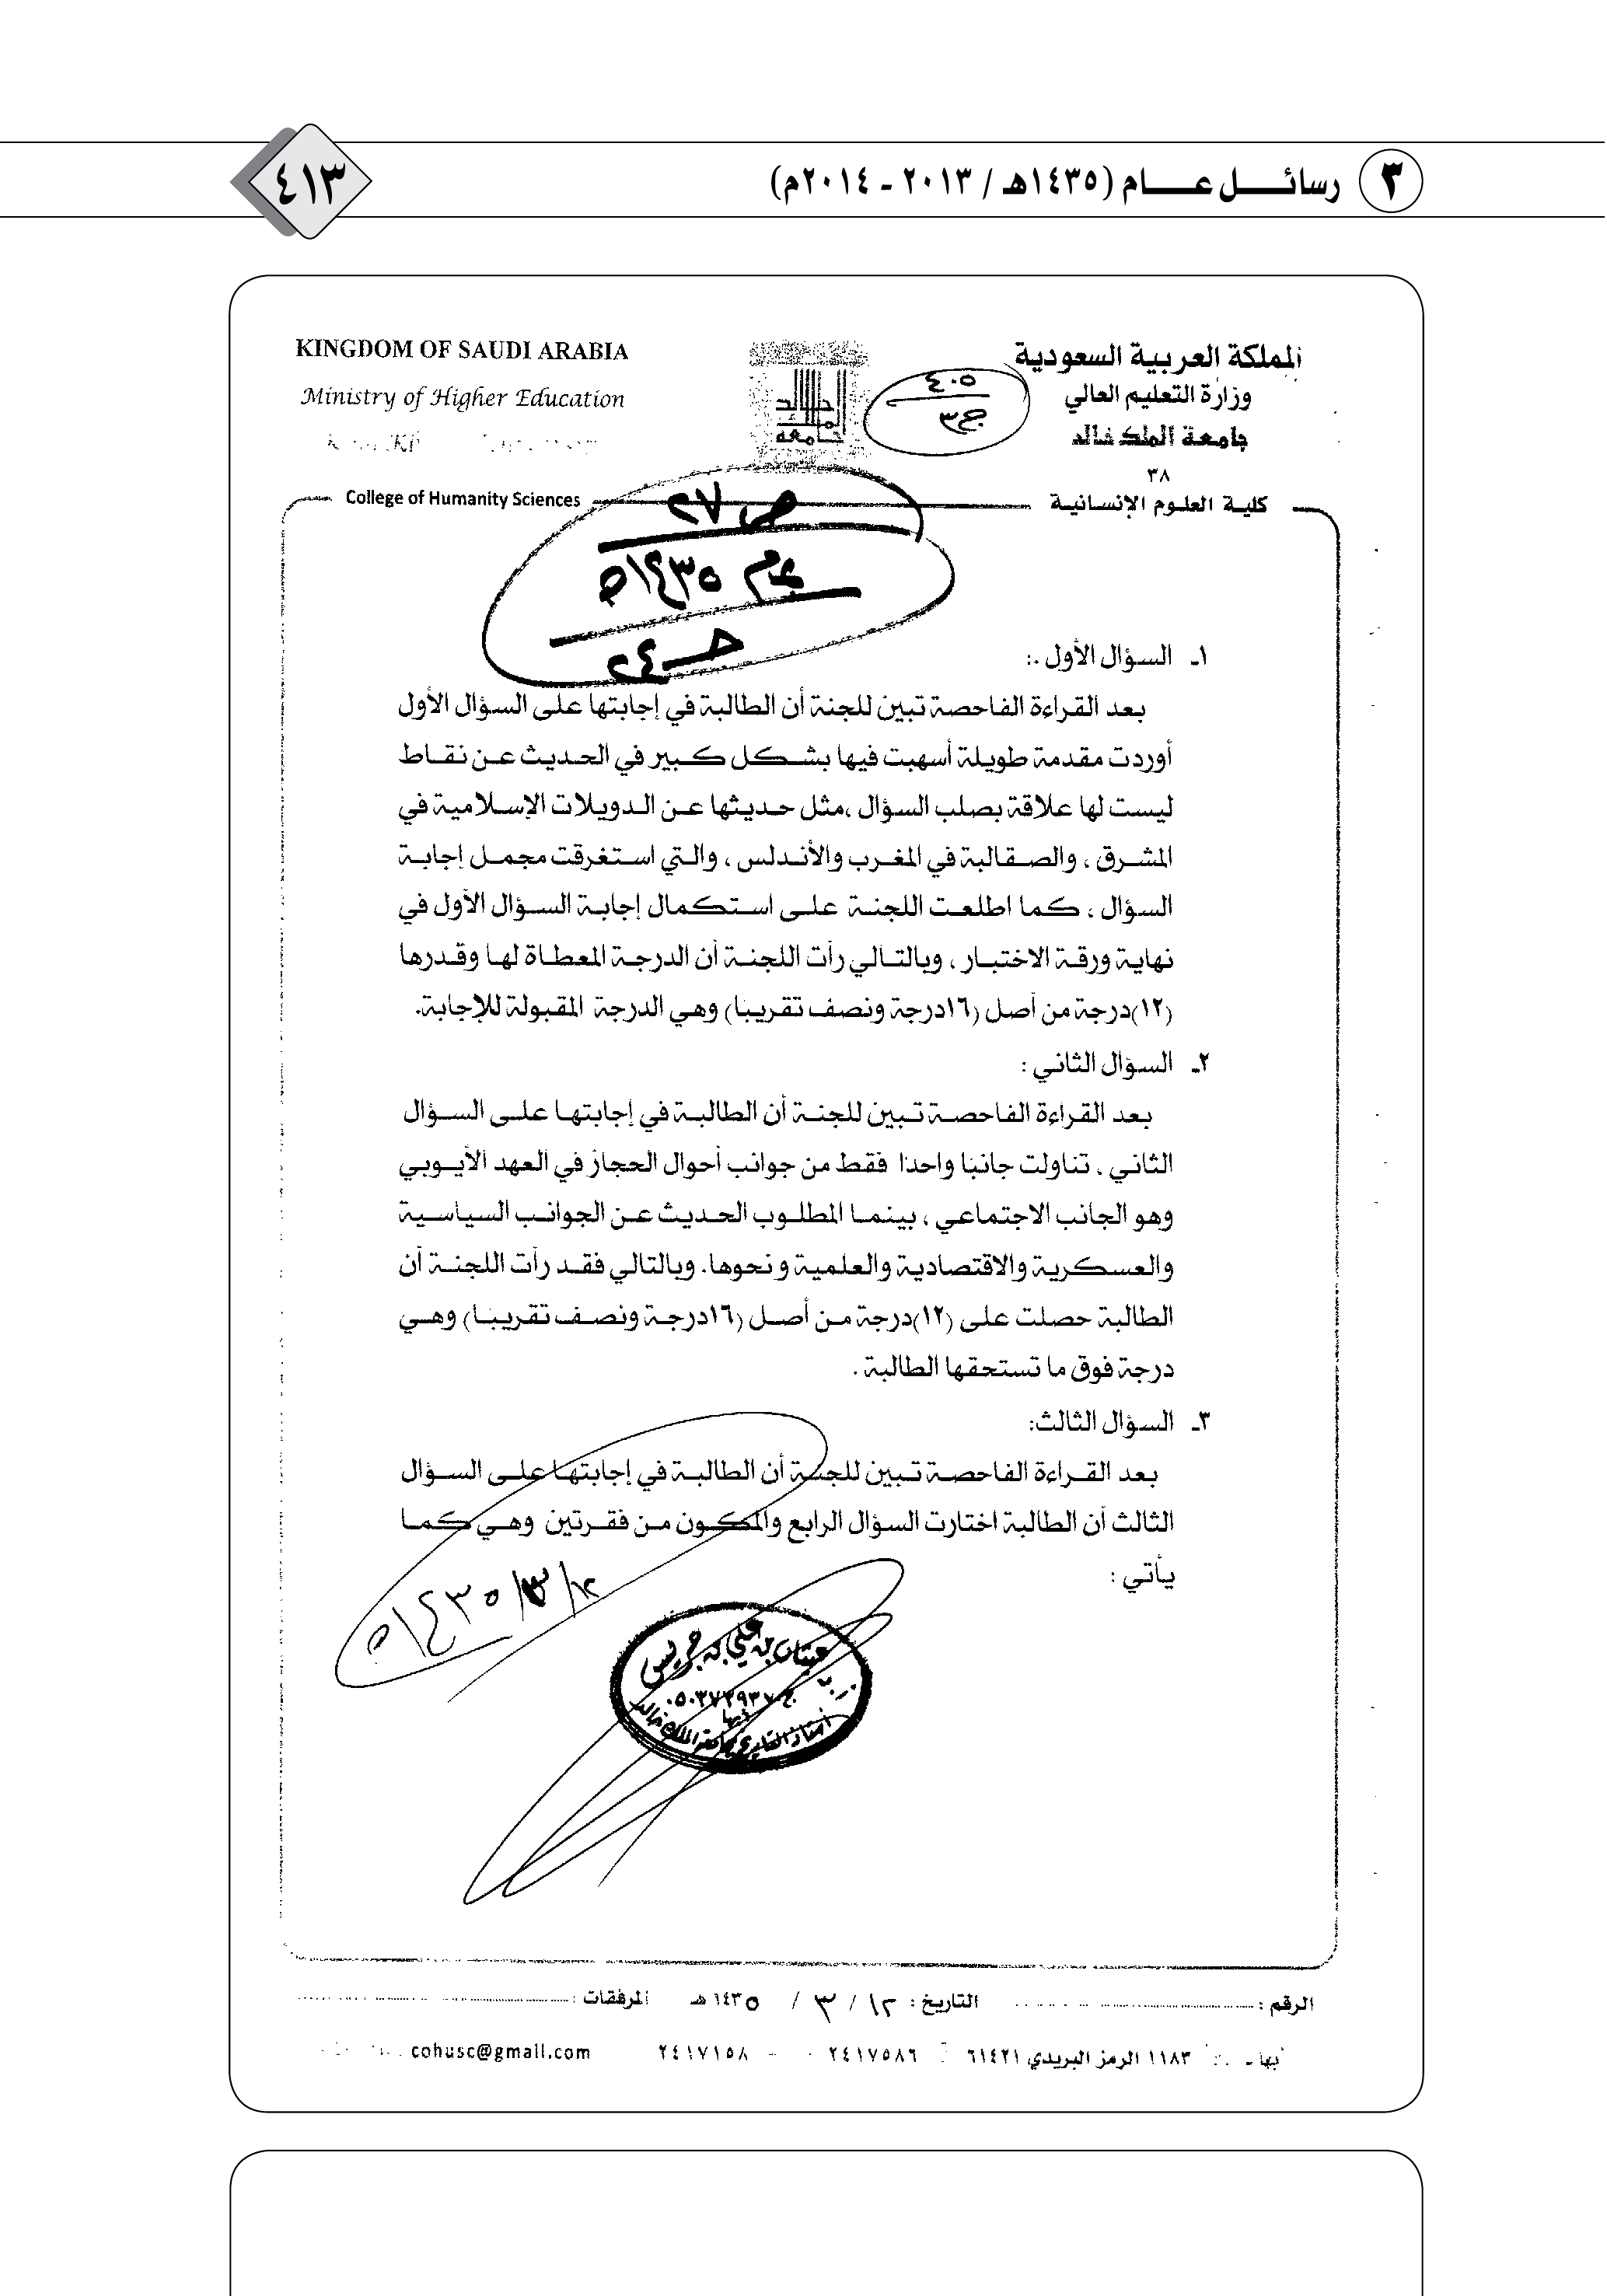 ٣ رسائـــل عـــام (١٤٣٥هـ / ٢٠١٣ - ٢٠١٤م)
٤١٣
KINGDOM OF SAUDI ARABIA
Ministry of Higher Education
المملكة العربية السعودية
وزارة التعليم العالي
جامعة الملك خالد
٣٨
٤٠٥
ج٣
College of Humanity Sciences
كلية العلوم الإنسانية
ص ٢٧
عام ١٤٣٥ه
حـ ٢٤
١ـ السؤال الأول :.
بعد القراءة الفاحصة تبين للجنة أن الطالبة في إجابتها على السؤال الأول
أوردت مقدمة طويلة أسهبت فيها بشكل كبير في الحديث عن نقاط
ليست لها علاقة بصلب السؤال ،مثل حديثها عن الدويلات الإسلامية في
المشرق ، والصقالبة في المغرب والأندلس ، والتي استغرقت مجمل إجابة
السؤال ، كما اطلعت اللجنة على استكمال إجابة السؤال الأول في
نهاية ورقة الاختبار ، وبالتالي رأت اللجنة أن الدرجة المعطاة لها وقدرها
(١٢)درجة من أصل (١٦درجة ونصف تقريبا) وهي الدرجة المقبولة للإجابة.
٢ـ السؤال الثاني :
بعد القراءة الفاحصة تبين للجنة أن الطالبة في إجابتها على السؤال
الثاني ، تناولت جانبا واحدا فقط من جوانب أحوال الحجاز في العهد الأيوبي
وهو الجانب الاجتماعي ، بينما المطلوب الحديث عن الجوانب السياسية
والعسكرية والاقتصادية والعلمية و نحوها. وبالتالي فقد رأت اللجنة أن
الطالبة حصلت على (١٢)درجة من أصل (١٦درجة ونصف تقريبا) وهي
درجة فوق ما تستحقها الطالبة .
٣ـ السؤال الثالث:
بعد القراءة الفاحصة تبين للجنة أن الطالبة في إجابتها على السؤال
الثالث أن الطالبة اختارت السؤال الرابع والمكون من فقرتين وهي كما
يأتي :
١٢/٣/١٤٣٥ه
بن علي بن جريس
أستاذ التاريخ بجامعة الملك خالد
الرقم : التاريخ : ١٢ / ٣ / ١٤٣٥ هـ المرفقات :
أبها ـ ١١٨٣ الرمز البريدي ٦١٤٢١ ٢٤١٧٥٨٦ - ٢٤١٧١٥٨ cohusc@gmail.com